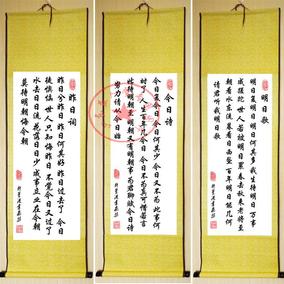 昨日词
昨日兮昨日昨日何其好昨日过去了今日
徒懊恼世人只知悔昨日不觉今日又过了
水去日日流花落日日少成事立业在今朝
莫待明朝悔今朝
今日诗
今日复今日今日何其少今日又不为此事何
时了人生百年几今日今日不为真可惜若言
姑待明朝至明朝又有明朝事为君聊赋今日诗
努力请从今日始
明日歌
明日复明日明日何其多我生待明日万事
成蹉跎世人若被明日累春去秋来老将至
朝看水东流暮看日西坠百年明日能几何
请君听我明日歌